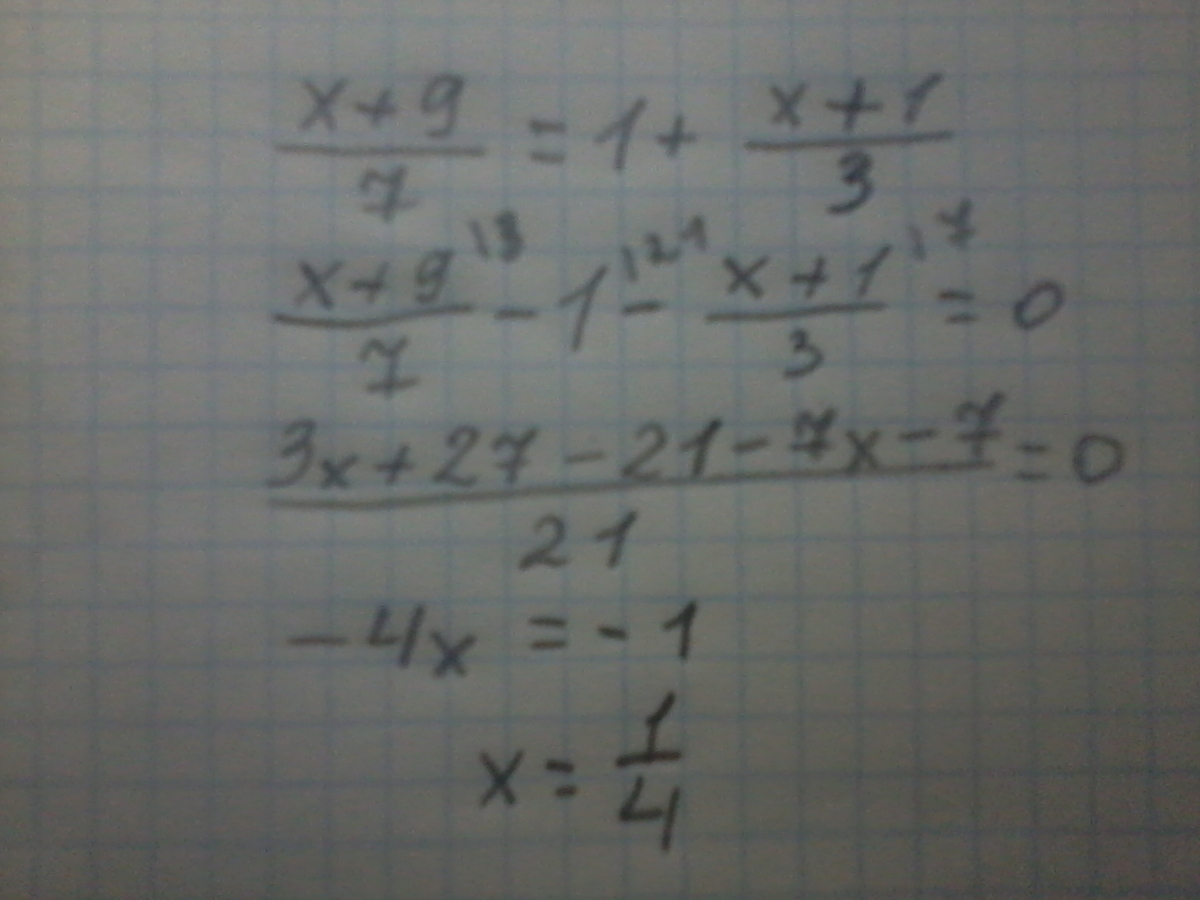 x+9/7 = 1 + x+1/3
x+9/7 |3 - 1 |21 - x+1/3 |7 = 0
3x+27-21-7x-7/21 = 0
-4x = -1
x = 1/4